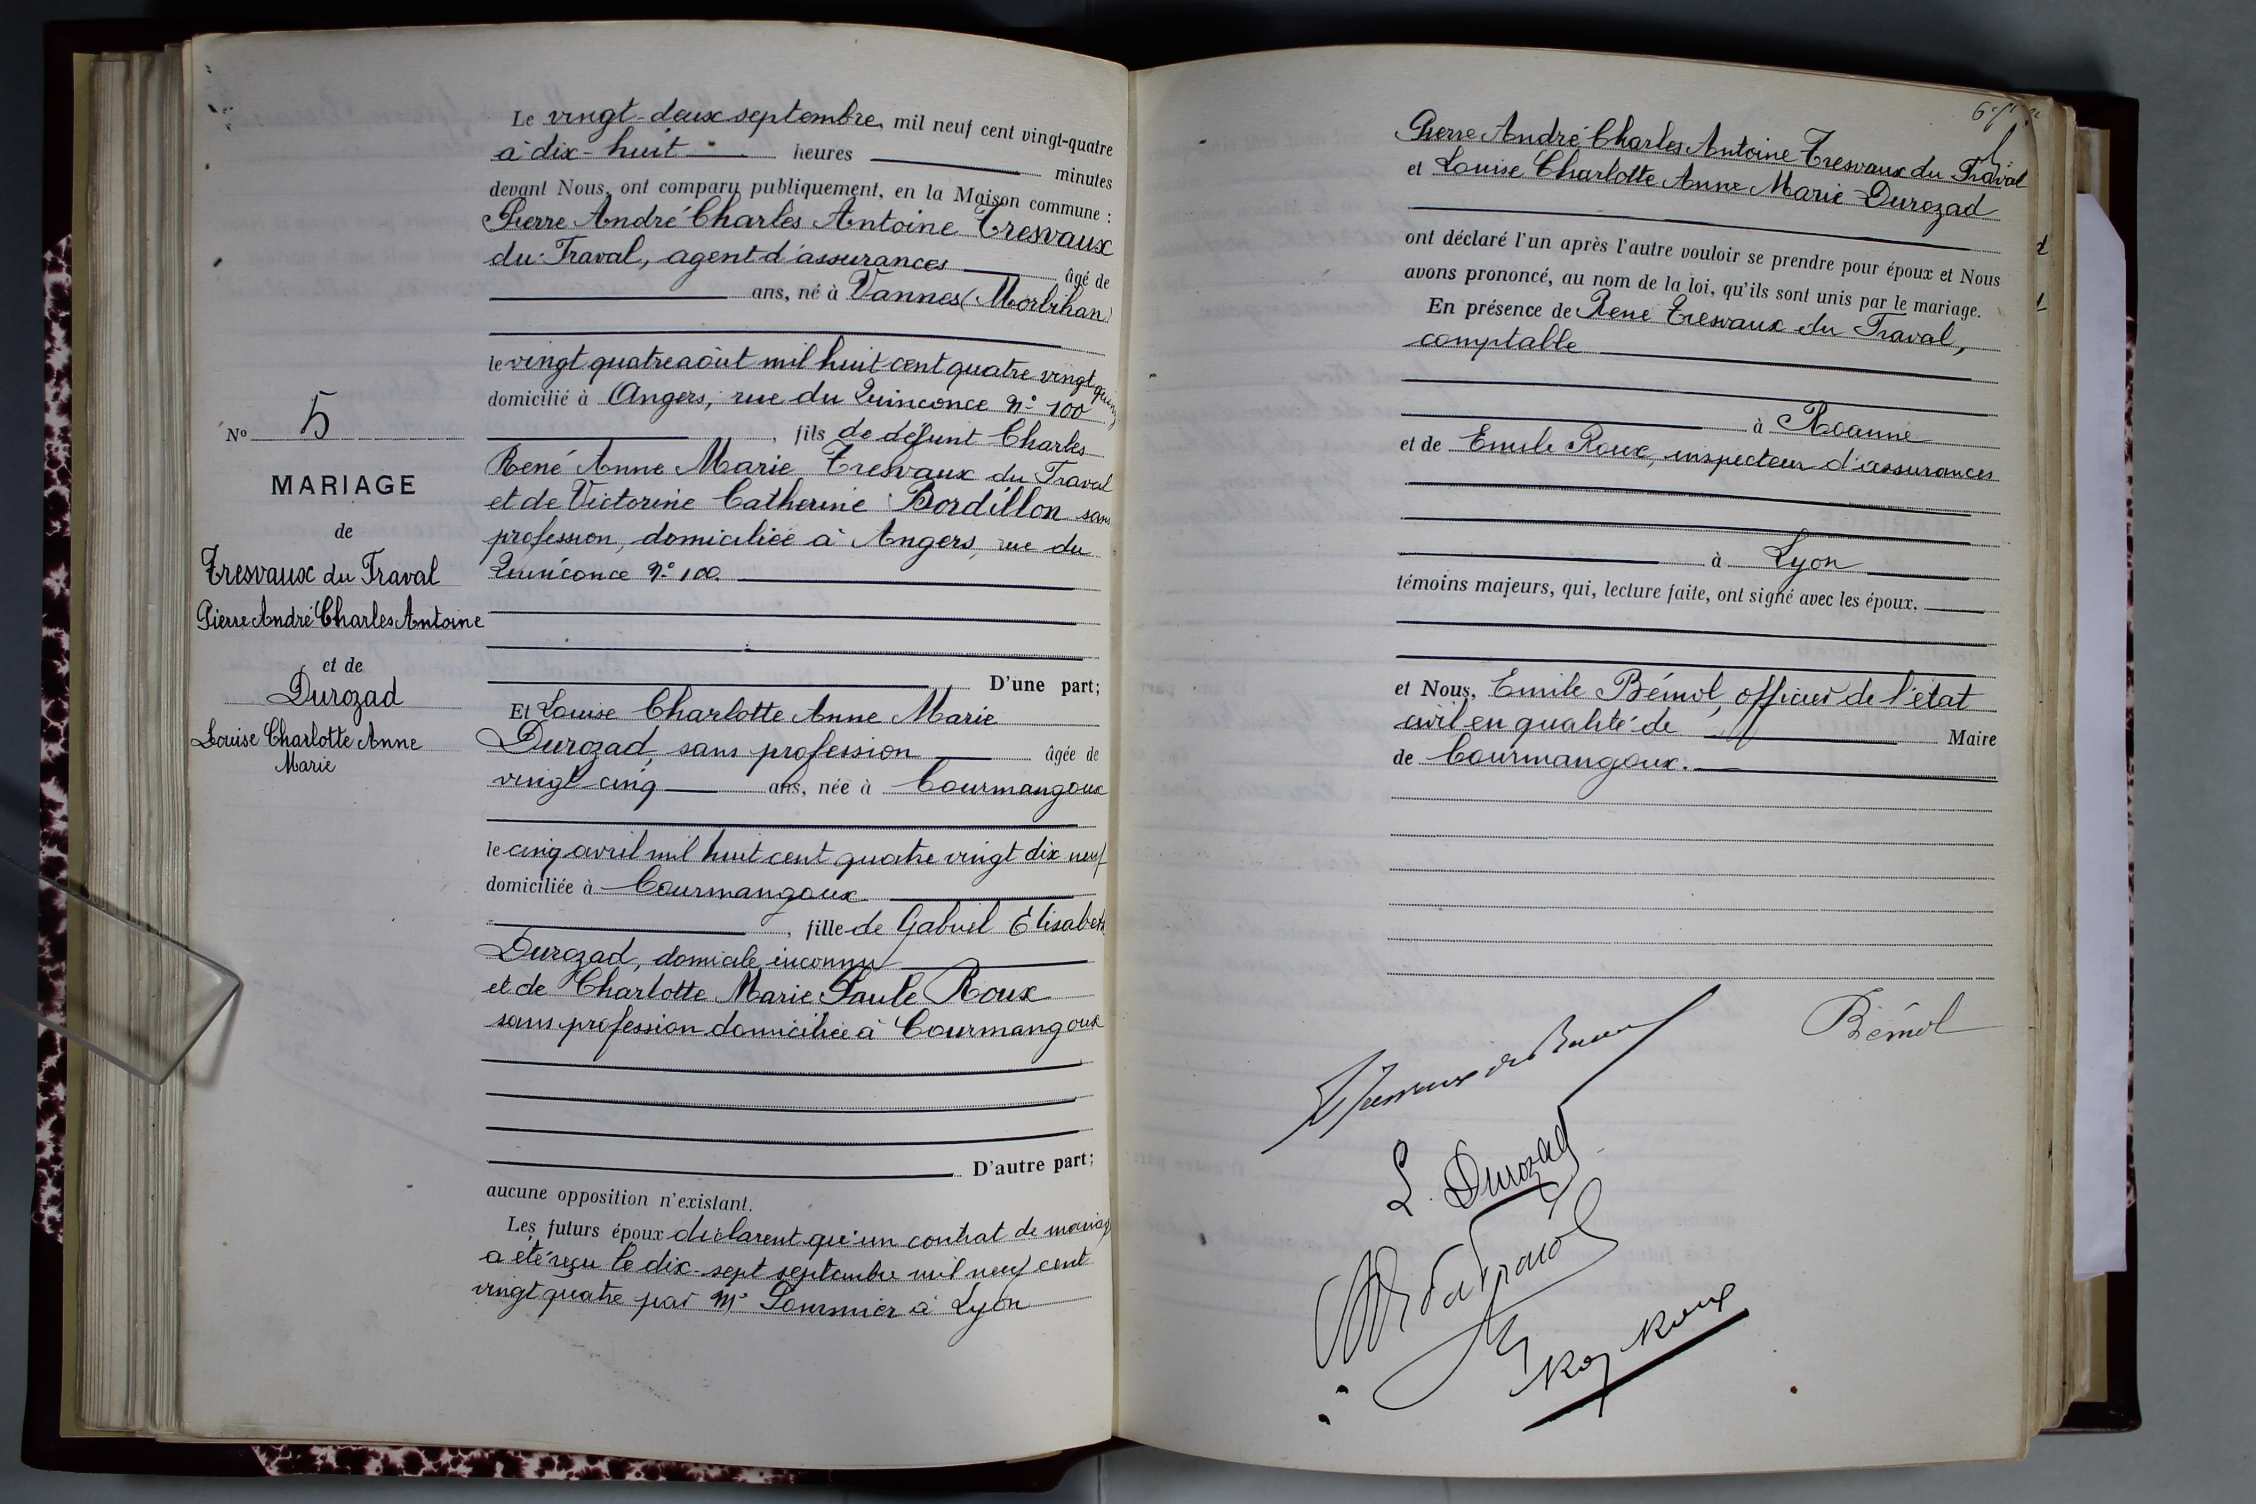 Le vingt-deux septembre, mil neuf cent vingt-quatre
à dix-huit heures minutes
devant Nous, ont comparu publiquement, en la Maison commune :
Pierre André Charles Antoine Tresvaux
du Traval, agent d'assurances âgé de
ans, né à Vannes (Morbihan)
le vingt quatre août mil huit cent quatre vingt quinze
domicilié à Angers, rue du Quinconce N° 100
, fils de défunt Charles
René Anne Marie Tresvaux du Traval
et de Victorine Catherine Bordillon sans
profession, domiciliée à Angers, rue du
Quinconce N° 100.
D'une part;
Et Louise Charlotte Anne Marie
Durozad, sans profession âgée de
vingt cinq ans, née à Courmangoux
le cinq avril mil huit cent quatre vingt dix neuf
domiciliée à Courmangoux
, fille de Gabriel Elisabeth
Durozad, domicile inconnu
et de Charlotte Marie Paule Roux
sans profession domiciliée à Courmangoux
D'autre part;
aucune opposition n'existant.
Les futurs époux déclarent qu'un contrat de mariage
a été reçu le dix-sept septembre mil neuf cent
vingt quatre par Me à Lyon
N° 5
MARIAGE
de
Tresvaux du Traval
Pierre André Charles Antoine
et de
Durozad
Louise Charlotte Anne
Marie
Pierre André Charles Antoine Tresvaux du Traval
et Louise Charlotte Anne Marie Durozad
ont déclaré l'un après l'autre vouloir se prendre pour époux et Nous
avons prononcé, au nom de la loi, qu'ils sont unis par le mariage.
En présence de René Tresvaux du Traval,
comptable
à Roanne
et de Emile Roux, inspecteur d'assurances
à Lyon
témoins majeurs, qui, lecture faite, ont signé avec les époux.
et Nous, Emile Bémol, officier de l'état
civil en qualité de Maire
de Courmangoux.
Bémol
Tresvaux du Traval
L. Durozad
Roux